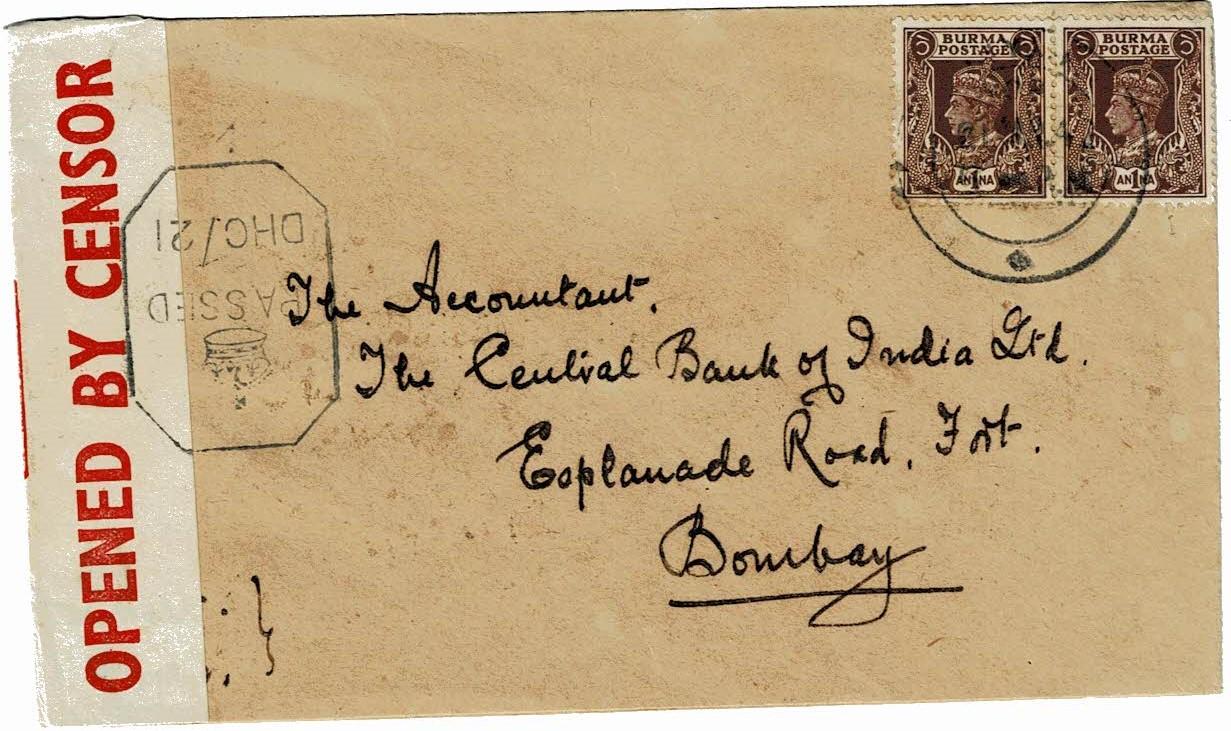 OPENED BY CENSOR
BURMA
POSTAGE
1
ANNA
BURMA
POSTAGE
1
ANNA
PASSED
DHC/21
The Accountant.
The Central Bank of India Ltd.
Esplanade Road, Fort.
Bombay